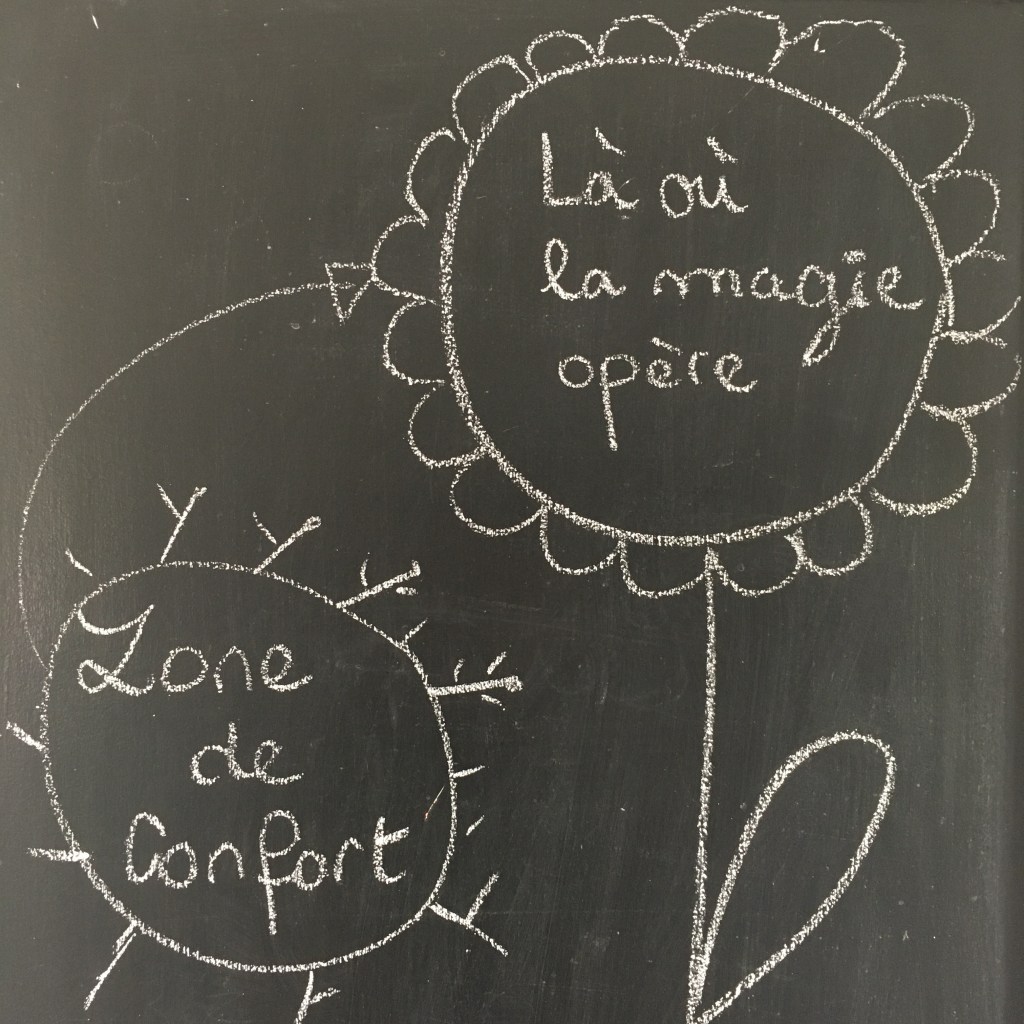 Là où
la magie
opère
Zone
de
Confort